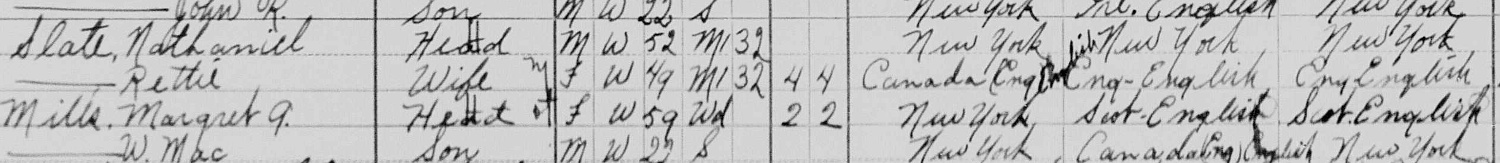 John R. Son M W 22 S New York Ire. English New York
Slate, Nathaniel Head M W 52 M1 32 New York New York New York
Rettie Wife F W 49 M1 32 4 4 Canada Eng English Eng-English Eng English
Mills, Margret A. Head F W 59 Wd 2 2 New York Scot-English Scot-English
W. Mac Son M W 22 S New York Canada Eng English New York